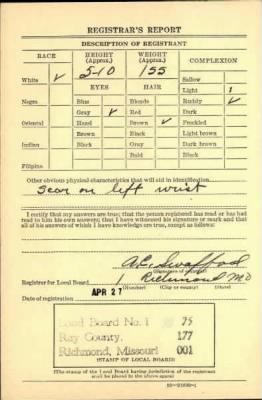 REGISTRAR'S REPORT
DESCRIPTION OF REGISTRANT
RACE HEIGHT (Approx.) WEIGHT (Approx.) COMPLEXION
White ✓ 5-10 155 Sallow
EYES HAIR Light 1
Negro Blue Blonde Ruddy ✓
Gray ✓ Red Dark
Oriental Hazel Brown ✓ Freckled
Brown Black Light brown
Indian Black Gray Dark brown
Bald Black
Filipino
Other obvious physical characteristics that will aid in identification
Scar on left wrist
I certify that my answers are true; that the person registered has read or has had
read to him his own answers; that I have witnessed his signature or mark and that
all of his answers of which I have knowledge are true, except as follows:
Swafford
(Signature of registrar)
Registrar for Local Board 1 Richmond Mo
(Number) (City or county) (State)
Date of registration APR 27
Local Board No. 1 75
Ray County, 177
Richmond, Missouri 001
(STAMP OF LOCAL BOARD)
(The stamp of the Local Board having jurisdiction of the registrant
shall be placed in the above space.)